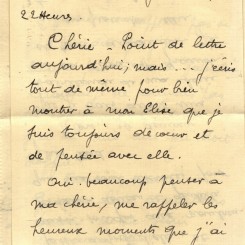 22 Heures.
Chérie - Point de lettre
aujourd'hui; mais ... j'écris
tout de même pour bien
montrer à mon Elise que je
suis toujours de cœur et
de pensée avec elle.
Oui - beaucoup penser à
ma chérie, me rappeler les
heureux moments que j'ai